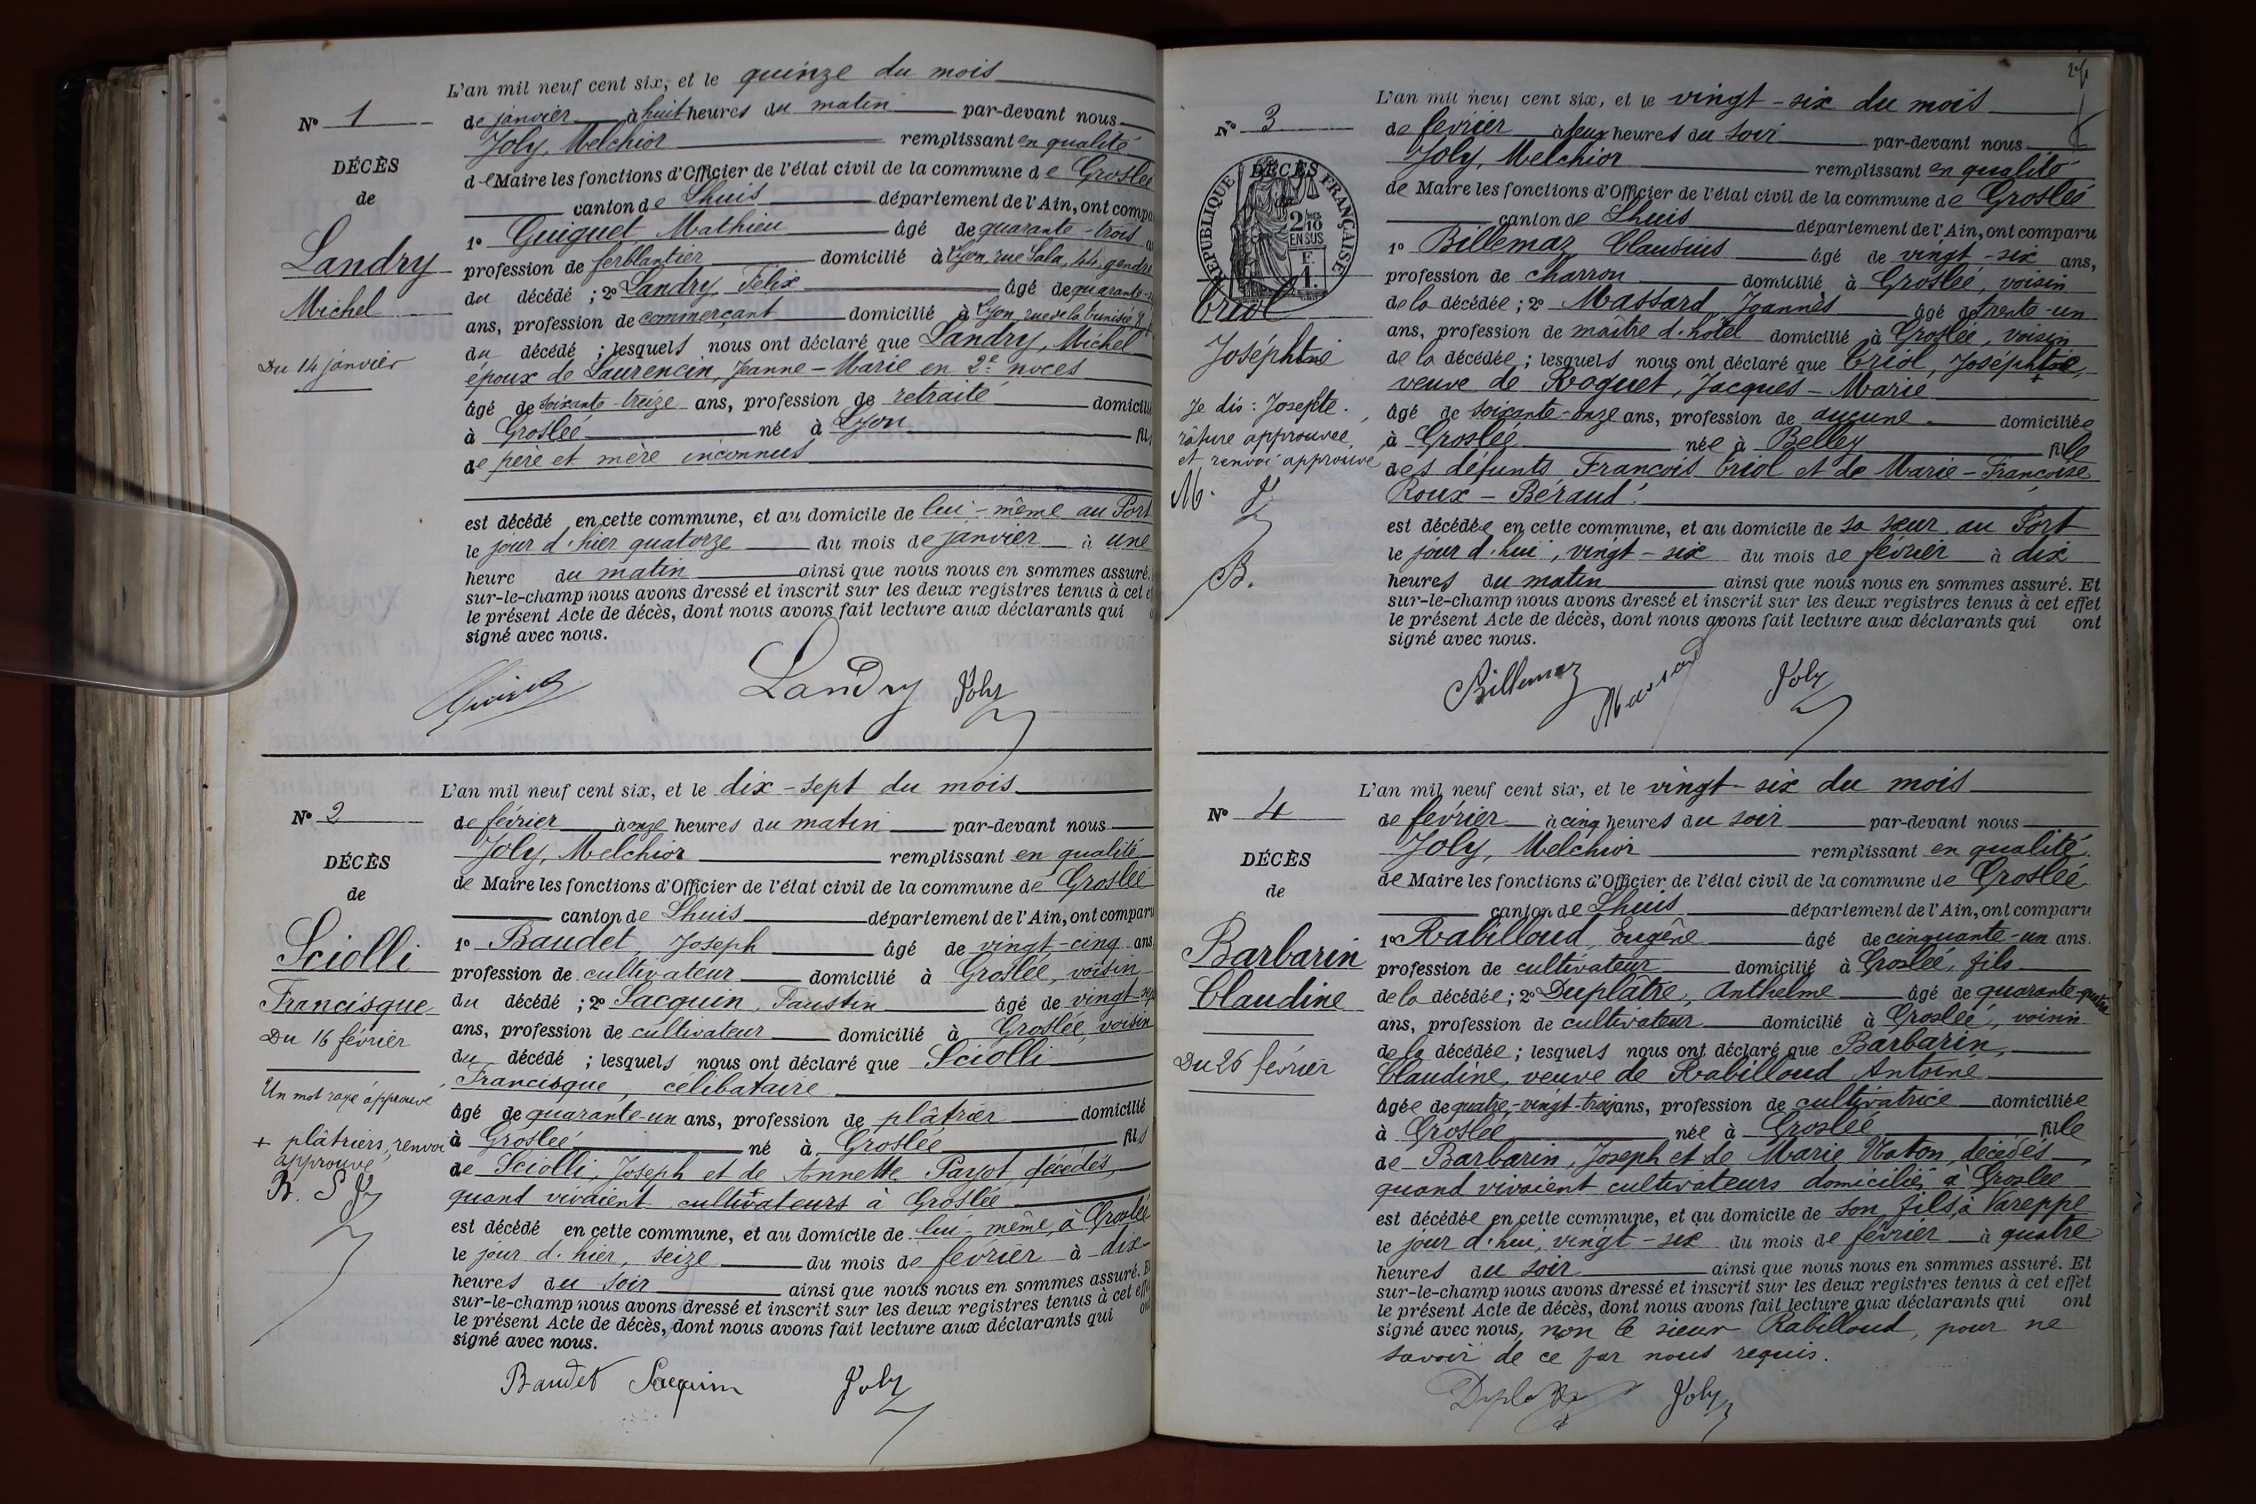 L'an mil neuf cent six, et le quinze du mois
N° 1
de janvier à huit heures du matin par-devant nous
Joly, Melchior remplissant en qualité
DÉCÈS
de Maire les fonctions d'Officier de l'état civil de la commune de Groslée
de
canton de Lhuis département de l'Ain, ont compa
Landry
1° Guiguet Mathieu âgé de quarante-trois
profession de ferblantier domicilié à Lyon, rue Sala, 44, gendre
Michel
du décédé ; 2° Landry Félix âgé de quarante-
ans, profession de commerçant domicilié à Lyon, rue de la
Du 14 janvier
du décédé ; lesquels nous ont déclaré que Landry, Michel
époux de Laurencin, Jeanne-Marie en 2e noces
âgé de soixante-treize ans, profession de retraité domicilié
à Groslée né à Lyon fils
de père et mère inconnus
est décédé en cette commune, et au domicile de lui-même au Port
le jour d'hier quatorze du mois de janvier à une
heure du matin ainsi que nous nous en sommes assuré.
sur-le-champ nous avons dressé et inscrit sur les deux registres tenus à cet
le présent Acte de décès, dont nous avons fait lecture aux déclarants qui
signé avec nous.
Landry Joly
L'an mil neuf cent six, et le dix-sept du mois
N° 2
de février à onze heures du matin par-devant nous
Joly, Melchior remplissant en qualité
DÉCÈS
de Maire les fonctions d'Officier de l'état civil de la commune de Groslée
de
canton de Lhuis département de l'Ain, ont comparu
Sciolli
1° Baudet, Joseph âgé de vingt-cinq ans
profession de cultivateur domicilié à Groslée, voisin
Francisque
du décédé ; 2° Sacquin, Faustin âgé de vingt-
ans, profession de cultivateur domicilié à Groslée, voisin
Du 16 février
du décédé ; lesquels nous ont déclaré que Sciolli
Francisque, célibataire
Un mot rayé approuvé
âgé de quarante-un ans, profession de plâtrier domicilié
+ plâtriers, renvoi
à Groslée né à Groslée fils
approuvé
de Sciolli, Joseph et de Annette Payot, décédés,
B. S J
quand vivaient cultivateurs à Groslée
est décédé en cette commune, et au domicile de lui-même, à Groslée
le jour d'hier, seize du mois de février à dix
heures du soir ainsi que nous nous en sommes assuré. Et
sur-le-champ nous avons dressé et inscrit sur les deux registres tenus à cet effet
le présent Acte de décès, dont nous avons fait lecture aux déclarants qui ont
signé avec nous.
Baudet Sacquin Joly
L'an mil neuf cent six, et le vingt-six du mois
N° 3
de février à deux heures du soir par-devant nous
Joly, Melchior remplissant en qualité
DÉCÈS
RÉPUBLIQUE FRANÇAISE
2/10 EN SUS
F. 1.
de Maire les fonctions d'Officier de l'état civil de la commune de Groslée
canton de Lhuis département de l'Ain, ont comparu
1° Billemaz Claudius âgé de vingt-six ans,
profession de charron domicilié à Groslée, voisin
Criol
de la décédée ; 2° Massard, Joannès âgé de trente-un
ans, profession de maître d'hôtel domicilié à Groslée, voisin
de la décédée ; lesquels nous ont déclaré que Criol,
veuve de Roguet, Jacques-Marie
Je dis : Josephte.
âgé de soixante-onze ans, profession de aucune domiciliée
râture approuvée
à Groslée née à Belley fille
et renvoi approuvé
des défunts François Criol et de Marie-Françoise
M. J
Roux-Béraud.
est décédée en cette commune, et au domicile de sa sœur au Port
le jour d'hui, vingt-six du mois de février à dix
B.
heures du matin ainsi que nous nous en sommes assuré. Et
sur-le-champ nous avons dressé et inscrit sur les deux registres tenus à cet effet
le présent Acte de décès, dont nous avons fait lecture aux déclarants qui ont
signé avec nous.
Billemaz Massard Joly
L'an mil neuf cent six, et le vingt-six du mois
N° 4
de février à cinq heures du soir par-devant nous
Joly, Melchior remplissant en qualité
DÉCÈS
de Maire les fonctions d'Officier de l'état civil de la commune de Groslée
de
canton de Lhuis département de l'Ain, ont comparu
Barbarin
1° Rabilloud, Eugène âgé de cinquante-un ans.
profession de cultivateur domicilié à Groslée, fils
Claudine
de la décédée ; 2° Duplatre, Anthelme âgé de quarante-quatre
ans, profession de cultivateur domicilié à Groslée, voisin
Du 26 février
de la décédée ; lesquels nous ont déclaré que Barbarin,
Claudine, veuve de Rabilloud Antoine
âgée de quatre-vingt-trois ans, profession de cultivatrice domiciliée
à Groslée née à Groslée fille
de Barbarin, Joseph et de Marie Vaton, décédés
quand vivaient cultivateurs domiciliés à Groslée
est décédée en cette commune, et au domicile de son fils, à Vareppe
le jour d'hui, vingt-six du mois de février à quatre
heures du soir ainsi que nous nous en sommes assuré. Et
sur-le-champ nous avons dressé et inscrit sur les deux registres tenus à cet effet
le présent Acte de décès, dont nous avons fait lecture aux déclarants qui ont
signé avec nous, non le sieur Rabilloud, pour ne
savoir de ce par nous requis.
Duplatre Joly